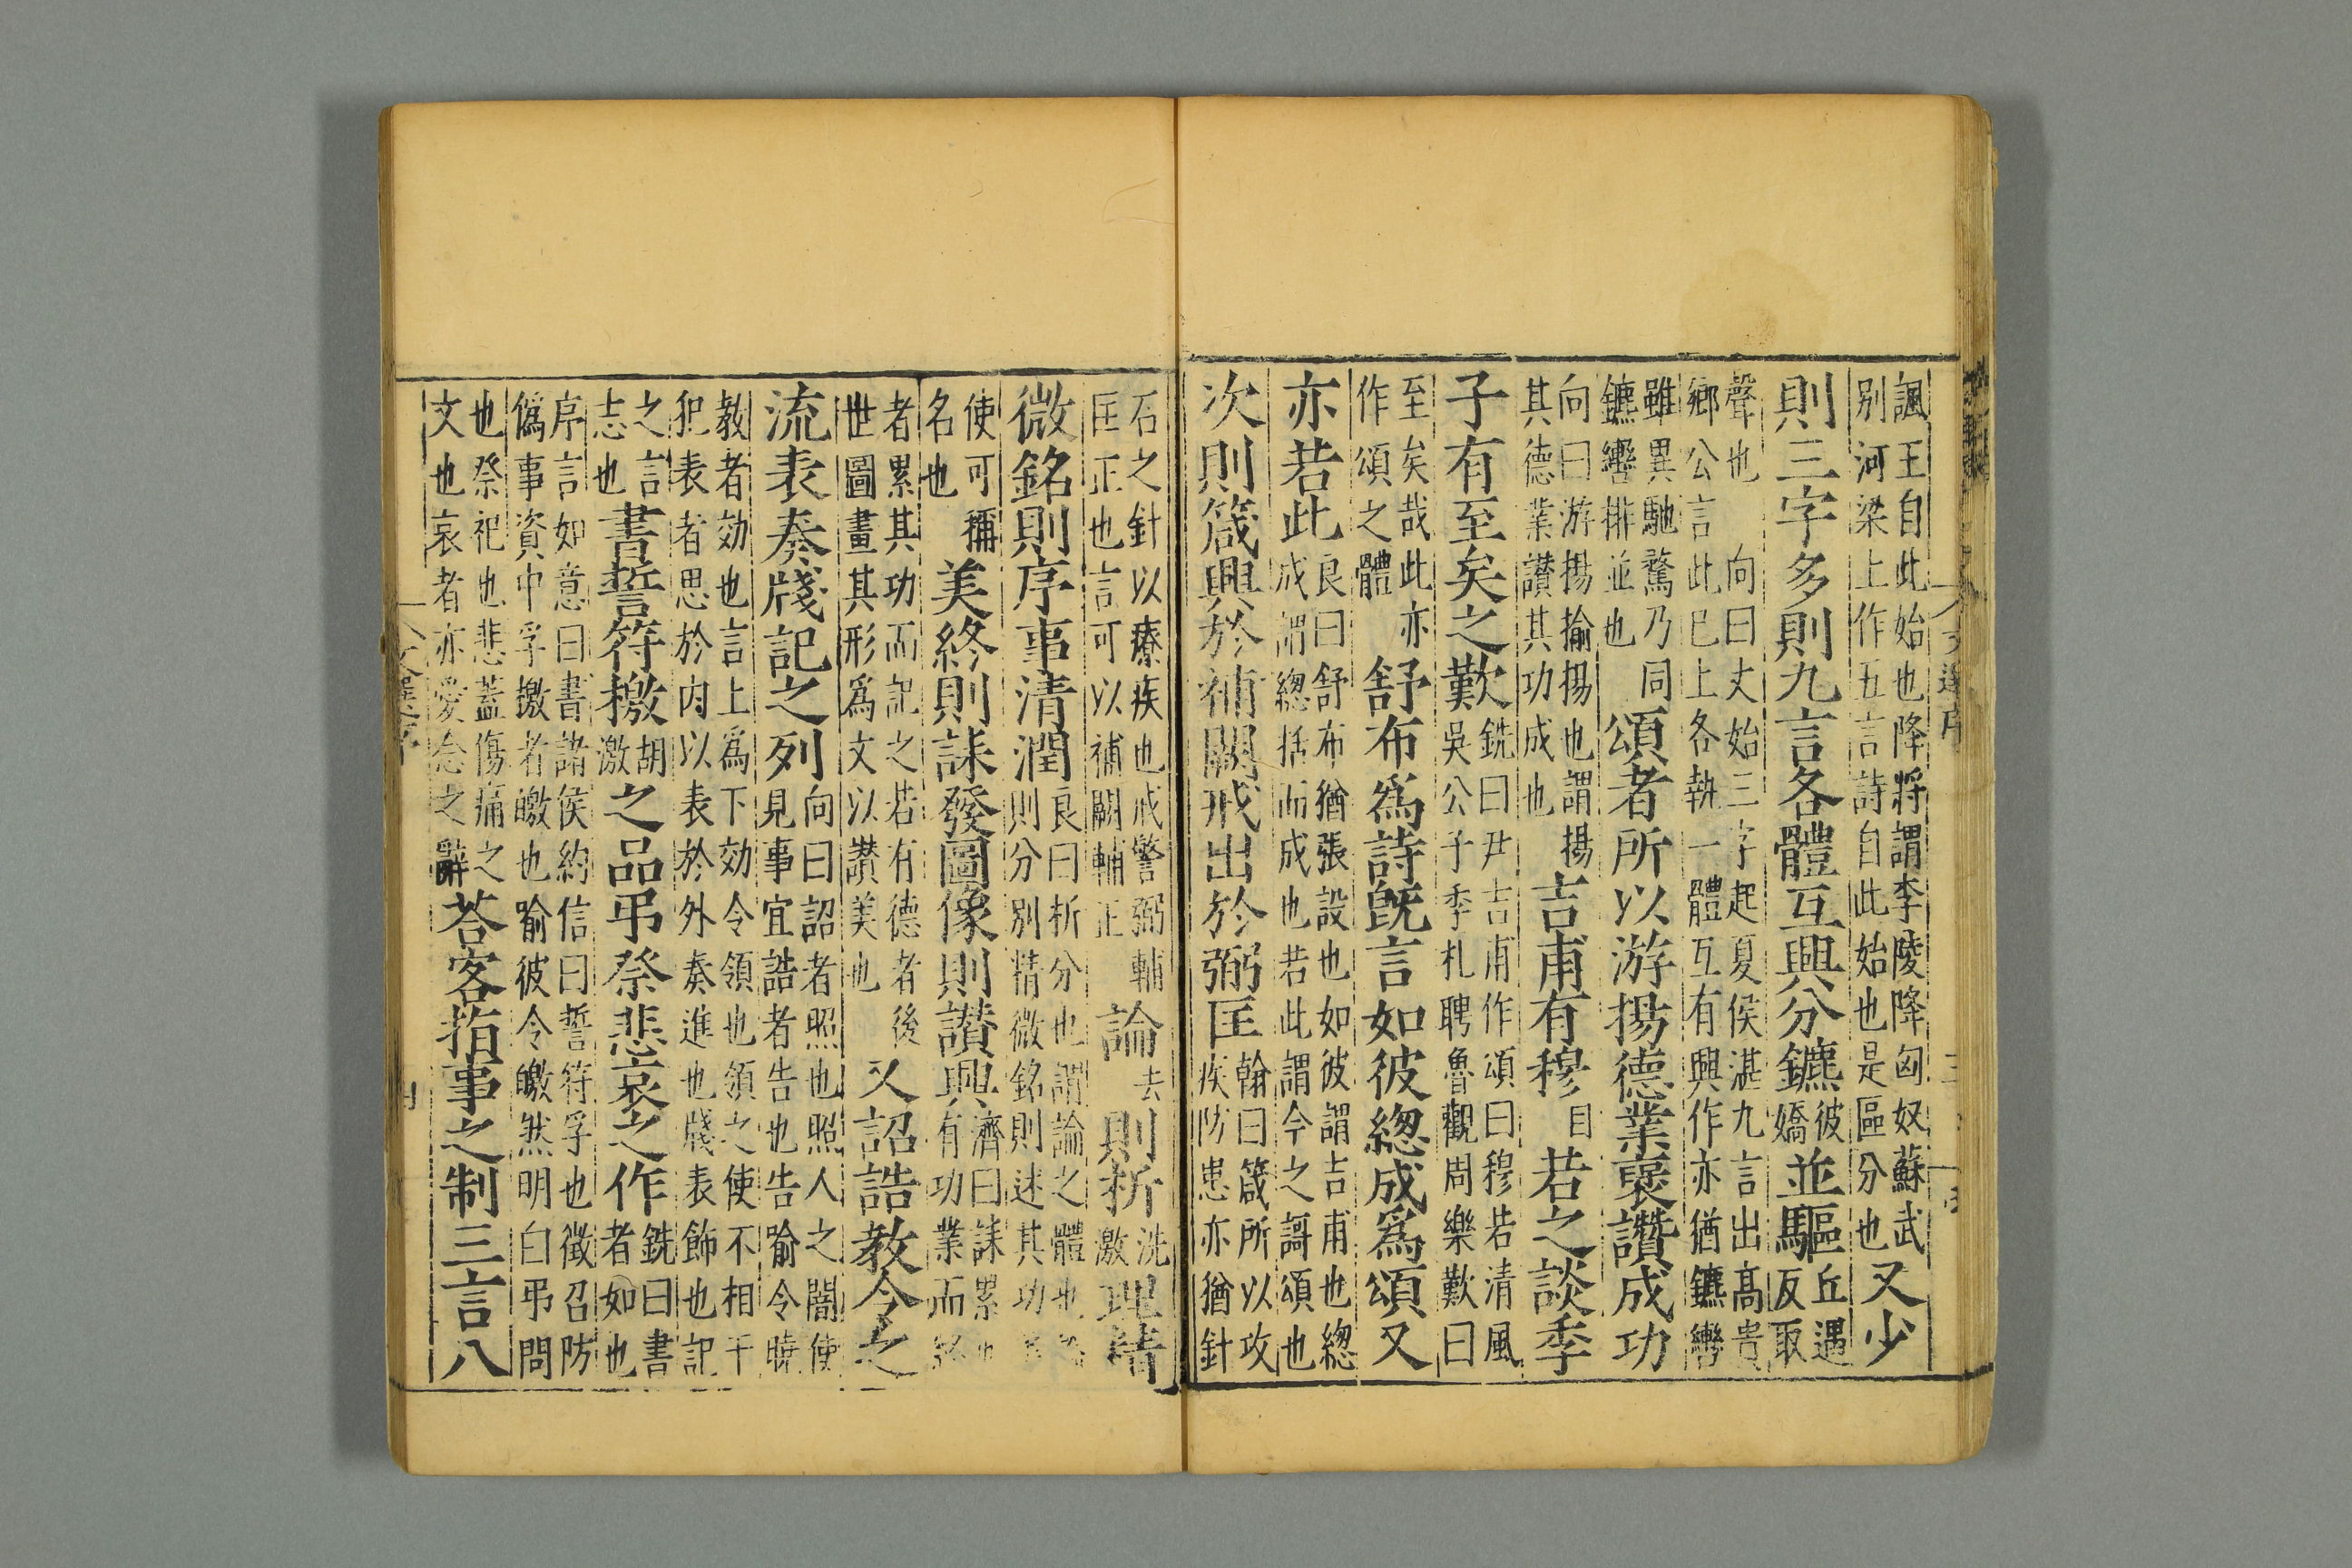 諷王自此始也降將謂李陵降匈奴蘇武
別河梁上作五言詩自此始也是區分也
又少
則三字多則九言各體互興分鑣
彼嬌
並驅
丘遇
反取
聲也 向曰丈始三字起夏侯湛九言出高貴
鄉公言此已上各執一體互有興作亦猶鑣轡
雖異馳騖乃同
鑣轡排並也
頌者所以游揚德業褒讚成功
向曰游揚揄揚也謂揚
其德業讃其功成也
吉甫有穆
目
若之談季
子有至矣之歎
銑曰尹吉甫作頌曰穆若清風
吳公子季札聘魯觀周樂歎曰
至矣哉此亦
作頌之體
舒布爲詩旣言如彼緫成爲頌又
亦若此
良曰舒布猶張設也如彼謂吉甫也緫
成謂緫括而成也若此謂今之謌頌也
次則箴興於補闕戒出於弼匡
翰曰箴所以攻
疾防患亦猶針
石之針以療疾也戒警弼輔
匡正也言可以補闕輔正
論
去
則析
洗
激
理精
微銘則序事清潤
良曰析分也謂論之體也
則分別精微銘則述其功
使可稱
名也
美終則誄發圖像則讃興
濟曰誄累也
有功業而終
者累其功而記之若有德者後
世圖畫其形爲文以讃美也
又詔誥敎令之
流表奏牋記之列
向曰詔者照也照人之闇使
見事宜誥者告也告喻令曉
敎者効也言上爲下効令領也領之使不相干
犯表者思於内以表於外奏進也牋表飾也記
之言
志也
書誓符檄
胡
激
之品弔祭悲哀之作
銑曰書
者如也
序言如意曰書諸侯約信曰誓符孚也徵召防
僞事資中孚檄者皦也喻彼令皦然明白弔問
也祭祀也悲蓋傷痛之
文也哀者亦愛念之辭
荅客指事之制三言八